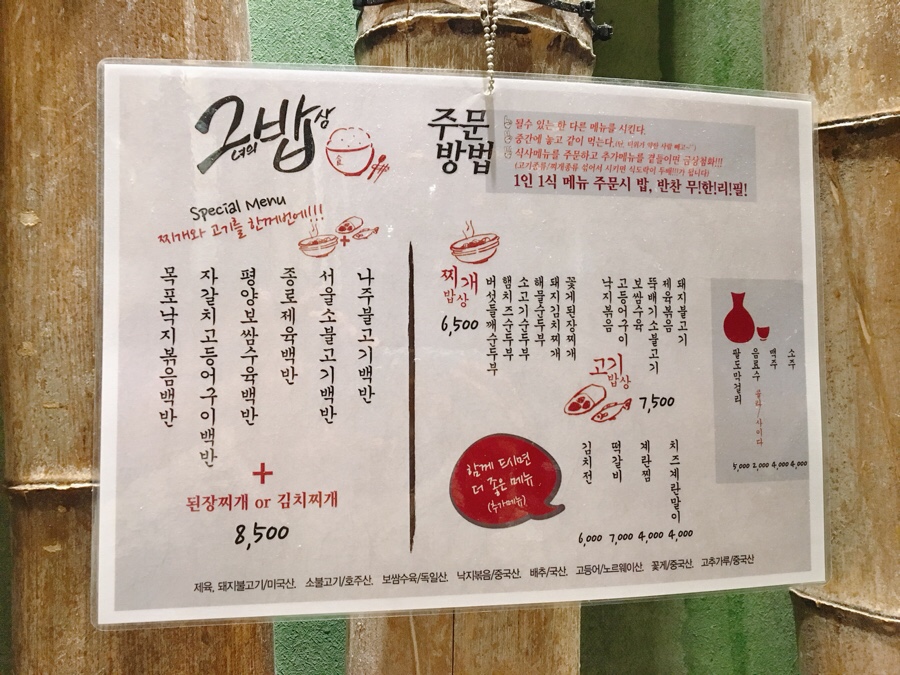 그녀의밥상
Special Menu
찌개와 고기를 한께번에!!!
나주불고기백반
서울소불고기백반
종로제육백반
평양보쌈수육백반
자갈치고등어구이백반
목포낙지볶음백반
+
된장찌개 or 김치찌개
8,500
주문
방법
될수 있는 한 다른 메뉴를 시킨다.
중간에 놓고 같이 먹는다.(단, 비위가 약한 사람 빼고~)
식사메뉴를 주문하고 추가메뉴를 곁들이면 금상첨화!!!
(고기종류/찌개종류 섞어서 시키면 식도락이 두배!!!가 됩니다)
1인 1식 메뉴 주문시 밥, 반찬 무!한!리!필!
찌개
밥상
6,500
꽃게된장찌개
돼지김치찌개
해물순두부
소고기순두부
햄치즈순두부
버섯들깨순두부
돼지불고기
제육볶음
뚝배기소불고기
보쌈수육
고등어구이
낙지볶음
고기
밥상
7,500
함께 드시면
더 좋은 메뉴
(추가메뉴)
치즈계란말이
계란찜
떡갈비
김치전
6,000 7,000 4,000 4,000
소주
맥주
음료수 콜라/사이다
팔도막걸리
5,000 2,000 4,000 4,000
제육, 돼지불고기/미국산, 소불고기/호주산, 보쌈수육/독일산, 낙지볶음/중국산, 배추/국산, 고등어/노르웨이산, 꽃게/중국산, 고추가루/중국산